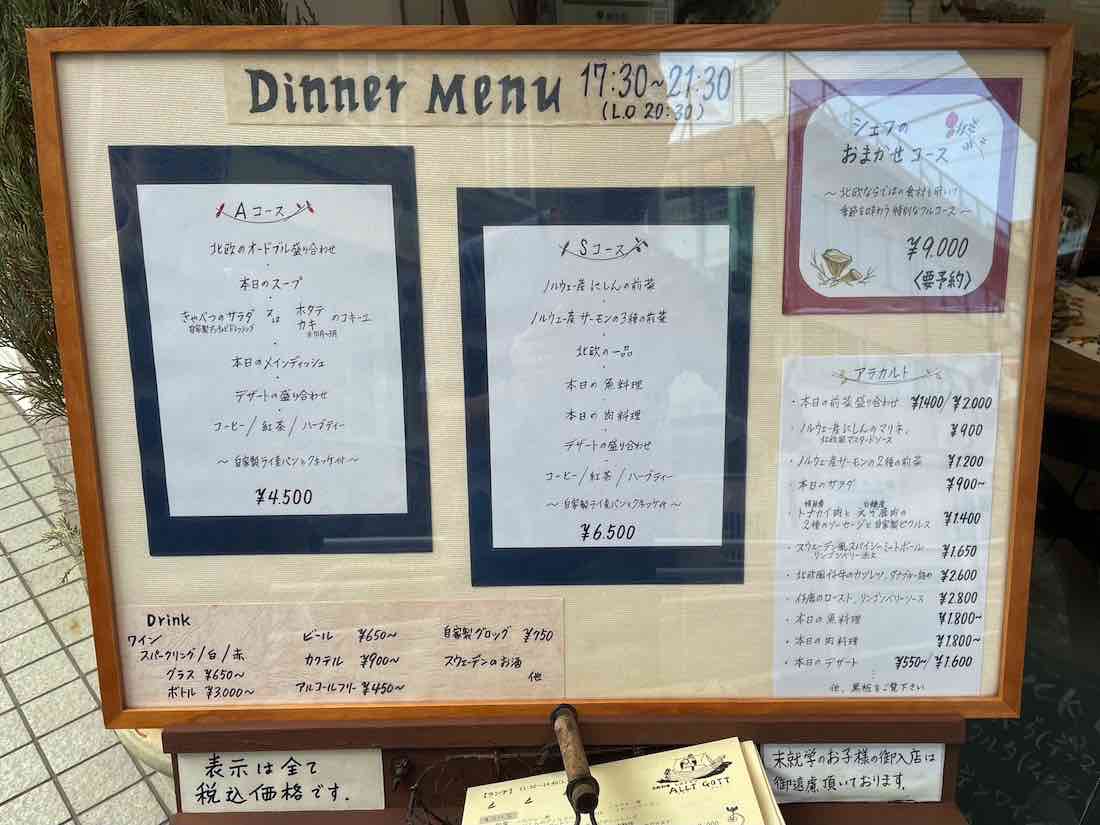 Dinner Menu 17:30~21:30
(L.O 20:30)
Aコース
北欧のオードブル盛り合わせ
・
本日のスープ
・
きゃべつのサラダ 又は ホタテ カキ のコキーユ
自家製 ドレッシング ※11月~3月
・
本日のメインディッシュ
・
デザートの盛り合わせ
・
コーヒー/紅茶/ハーブティー
~自家製ライ麦パンとクネッケ付~
¥4.500
Sコース
ノルウェー産にしんの前菜
・
ノルウェー産サーモンの3種の前菜
・
北欧の一品
・
本日の魚料理
・
本日の肉料理
・
デザートの盛り合わせ
・
コーヒー/紅茶/ハーブティー
~自家製ライ麦パンとクネッケ付~
¥6.500
シェフの
おまかせコース
~北欧ならではの食材を用いて
季節を味わう特別なフルコース~
¥9.000
〈要予約〉
アラカルト
・本日の前菜盛り合わせ ¥1.400/¥2.000
・ノルウェー産にしんのマリネ、 ¥900
北欧風マスタードソース
・ノルウェー産サーモンの2種の前菜 ¥1.200
・本日のサラダ ¥900~
・トナカイ肉と 鹿肉の ¥1.400
2種のソーセージと自家製ピクルス
・スウェーデン風スパイシーミートボール ¥1.650
リンゴンベリー添え
・北欧風仔牛のカツレツ、 ¥2.600
・仔鹿のロースト、リンゴンベリーソース ¥2.800
・本日の魚料理 ¥1.800~
・本日の肉料理 ¥1.800~
・本日のデザート ¥550~/¥1.600
他、黒板をご覧下さい
Drink
ワイン
スパークリング/白/赤
グラス ¥650~
ボトル ¥3.000~
ビール ¥650~
カクテル ¥900~
アルコールフリー ¥450~
自家製グロッグ ¥750
スウェーデンのお酒
他
表示は全て
税込価格です.
ALLT GOTT
未就学のお子様の御入店は
御遠慮頂いております.